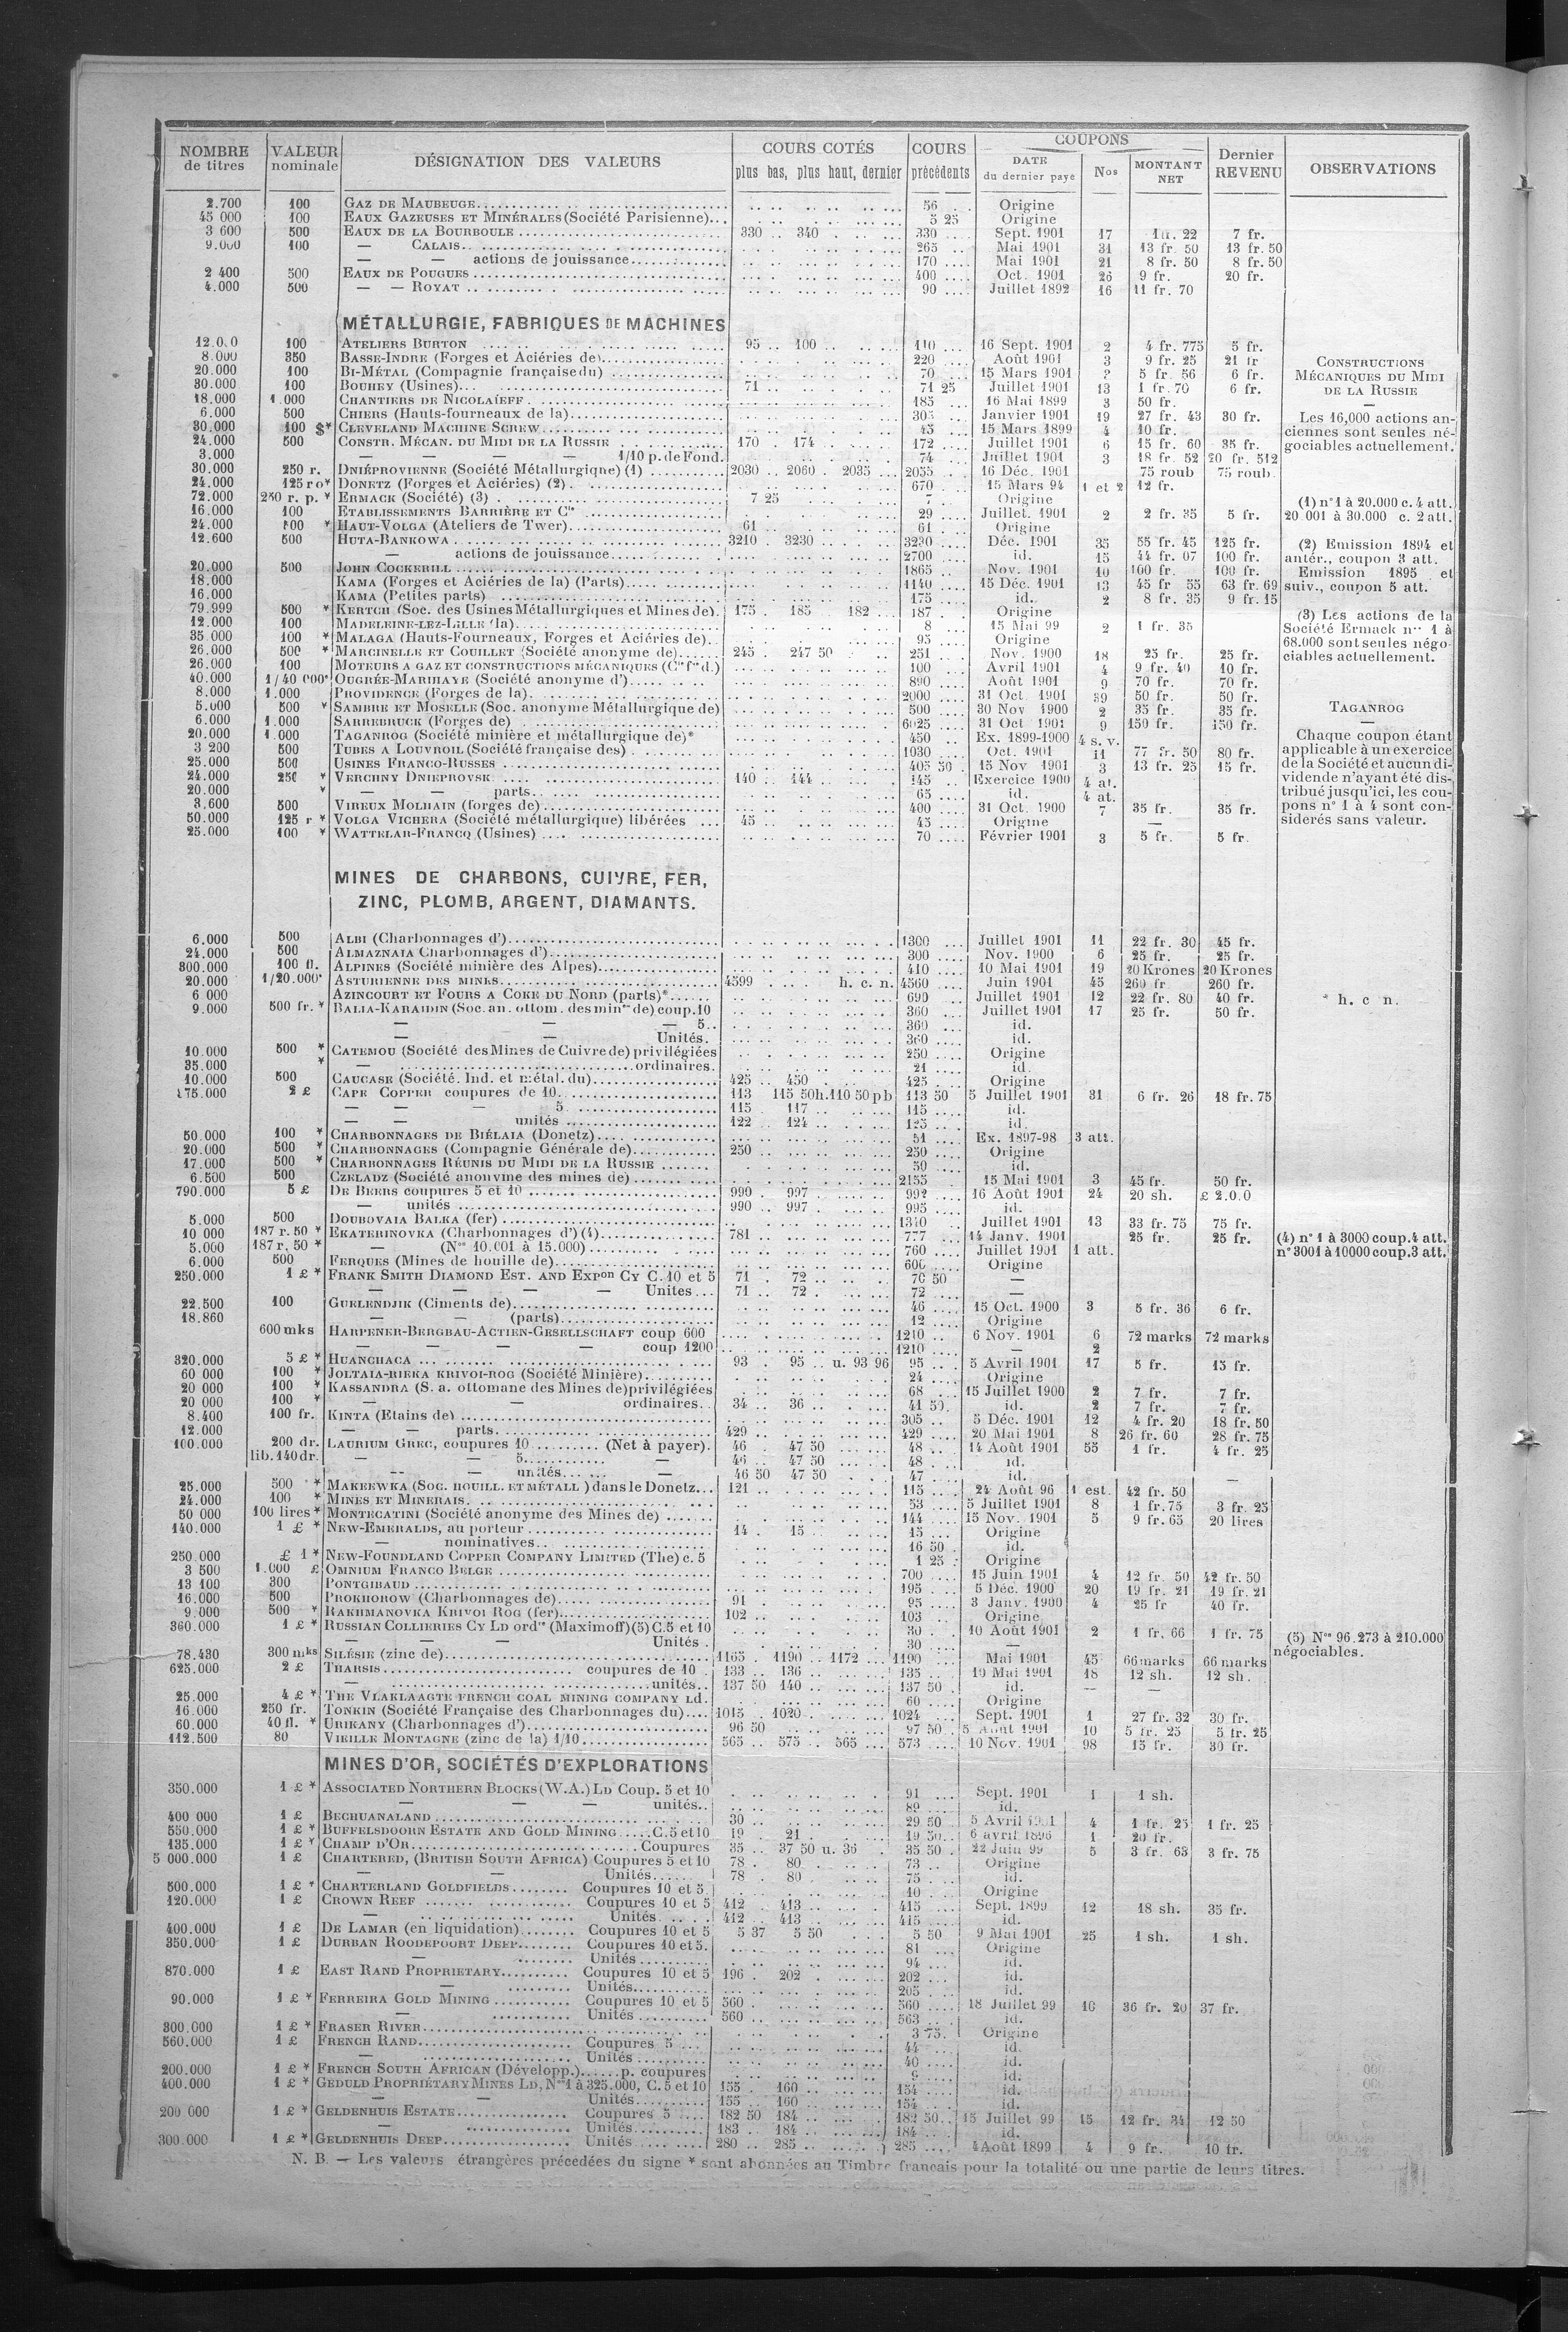 NOMBRE de titres | VALEUR nominale | DÉSIGNATION DES VALEURS | COURS COTÉS plus bas, plus haut, dernier | COURS précédents | COUPONS DATE du dernier paye | Nos | MONTANT NET | Dernier REVENU | OBSERVATIONS
2.700 100 GAZ DE MAUBEUGE 56 Origine
45 000 100 EAUX GAZEUSES ET MINÉRALES (Société Parisienne) 5 25 Origine
3 600 500 EAUX DE LA BOURBOULE 330 340 330 Sept. 1901 17 22 7 fr.
9.000 100 — CALAIS 265 Mai 1901 31 13 fr. 50 13 fr. 50
— — actions de jouissance 170 Mai 1901 21 8 fr. 50 8 fr. 50
2 400 500 EAUX DE POUGUES 400 Oct. 1901 26 9 fr. 20 fr.
4.000 500 — — ROYAT 90 Juillet 1892 16 11 fr. 70
MÉTALLURGIE, FABRIQUES DE MACHINES
12.000 100 ATELIERS BURTON 95 100 110 16 Sept. 1901 2 4 fr. 775 5 fr.
8.000 350 BASSE-INDRE (Forges et Aciéries de) 220 Août 1901 3 9 fr. 25 21 fr
20.000 100 BI-MÉTAL (Compagnie française du) 70 15 Mars 1901 5 fr. 56 6 fr.
30.000 100 BOUHEY (Usines) 71 71 25 Juillet 1901 13 1 fr. 70 6 fr.
18.000 1.000 CHANTIERS DE NICOLAÏEFF 185 16 Mai 1899 3 50 fr.
6.000 500 CHIERS (Hauts-fourneaux de la) 305 Janvier 1901 19 27 fr. 43 30 fr.
30.000 100 $* CLEVELAND MACHINE SCREW 45 15 Mars 1899 4 10 fr.
24.000 500 CONSTR. MÉCAN. DU MIDI DE LA RUSSIE 170 174 172 Juillet 1901 6 15 fr. 60 35 fr.
3.000 — — — — 1/10 p. de Fond. 74 Juillet 1901 3 18 fr. 52 20 fr. 512
30.000 250 r. DNIÉPROVIENNE (Société Métallurgique) (1) 2030 2060 2035 2055 16 Déc. 1901 75 roub 75 roub.
24.000 125 r o* DONETZ (Forges et Aciéries) (2) 670 15 Mars 94 1 et 2 12 fr.
72.000 250 r. p. * ERMACK (Société) (3) 7 25 7 Origine
16.000 100 ETABLISSEMENTS BARRIÈRE ET Cie 29 Juillet. 1901 2 2 fr. 35 5 fr.
24.000 500 * HAUT-VOLGA (Ateliers de Twer) 61 61 Origine
12.600 500 HUTA-BANKOWA 3210 3230 3230 Déc. 1901 35 55 fr. 45 125 fr.
— actions de jouissance 2700 id. 15 44 fr. 07 100 fr.
20.000 500 JOHN COCKERILL 1865 Nov. 1901 10 100 fr. 100 fr.
18.000 KAMA (Forges et Aciéries de la) (Parts) 1140 15 Déc. 1901 13 45 fr 55 63 fr. 69
16.000 KAMA (Petites parts) 175 id. 2 8 fr. 35 9 fr. 15
79.999 500 * KERTCH (Soc. des Usines Métallurgiques et Mines de) 175 185 182 187 Origine
12.000 100 MADELEINE-LEZ-LILLE (la) 8 15 Mai 99 2 1 fr. 35
35.000 100 * MALAGA (Hauts-Fourneaux, Forges et Aciéries de) 95 Origine
26.000 500 * MARCINELLE ET COUILLET (Société anonyme de) 245 247 50 251 Nov. 1900 18 25 fr. 25 fr.
26.000 100 MOTEURS A GAZ ET CONSTRUCTIONS MÉCANIQUES (Cie fse d.) 100 Avril 1901 4 9 fr. 40 10 fr.
40.000 1/40 000* OUGRÉE-MARIHAYE (Société anonyme d') 890 Août 1901 9 70 fr. 70 fr.
8.000 1.000 PROVIDENCE (Forges de la) 2000 31 Oct. 1901 59 50 fr. 50 fr.
5.000 500 * SAMBRE ET MOSELLE (Soc. anonyme Métallurgique de) 500 30 Nov 1900 2 35 fr. 35 fr.
6.000 1.000 SARREBRUCK (Forges de) 6025 31 Oct 1901 9 150 fr. 150 fr.
20.000 1.000 TAGANROG (Société minière et métallurgique de)* 450 Ex. 1899-1900 4 s. v.
3 200 500 TUBES A LOUVROIL (Société française des) 1030 Oct. 1901 11 77 fr. 50 80 fr.
25.000 500 USINES FRANCO-RUSSES 405 50 15 Nov 1901 3 13 fr. 25 15 fr.
24.000 250 * VERCHNY DNIEPROVSK 140 144 145 Exercice 1900 4 at.
20.000 * — — parts 65 id. 4 at.
3.600 500 VIREUX MOLHAIN (forges de) 400 31 Oct. 1900 7 35 fr. 35 fr.
50.000 125 r * VOLGA VICHERA (Société métallurgique) libérées 45 45 Origine —
25.000 100 * WATTELAR-FRANCQ (Usines) 70 Février 1901 3 5 fr. 5 fr.
CONSTRUCTIONS
MÉCANIQUES DU MIDI
DE LA RUSSIE
—
Les 16,000 actions an-
ciennes sont seules né-
gociables actuellement.
(1) n° 1 à 20.000 c. 4 att.
20 001 à 30.000 c. 2 att.
(2) Emission 1894 et
antér., coupon 3 att.
Emission 1895 et
suiv., coupon 5 att.
(3) Les actions de la
Société Ermack nos 1 à
68.000 sont seules négo-
ciables actuellement.
TAGANROG
—
Chaque coupon étant
applicable à un exercice
de la Société et aucun di-
vidende n'ayant été dis-
tribué jusqu'ici, les cou-
pons n° 1 à 4 sont con-
sidérés sans valeur.
MINES DE CHARBONS, CUIVRE, FER,
ZINC, PLOMB, ARGENT, DIAMANTS.
6.000 500 ALBI (Charbonnages d') 1300 Juillet 1901 11 22 fr. 30 45 fr.
24.000 500 ALMAZNAIA Charbonnages d') 300 Nov. 1900 6 25 fr. 25 fr.
300.000 100 fl. ALPINES (Société minière des Alpes) 410 10 Mai 1901 19 20 Krones 20 Krones
20.000 1/20.000* ASTURIENNE DES MINES 4599 h. c. n. 4560 Juin 1901 45 260 fr 260 fr.
6 000 AZINCOURT ET FOURS A COKE DU NORD (parts)* 690 Juillet 1901 12 22 fr. 80 40 fr. * h. c n.
9.000 500 fr. * BALIA-KARAIDIN (Soc. an. ottom. des mines de) coup. 10 360 Juillet 1901 17 25 fr. 50 fr.
— — — 5 360 id.
— — Unités. 360 id.
10.000 500 * CATEMOU (Société des Mines de Cuivre de) privilégiées 250 Origine
35.000 * — ordinaires. 21 id.
10.000 500 CAUCASE (Société. Ind. et métal. du) 425 450 425 Origine
175.000 2 £ CAPE COPPER coupures de 10 113 115 50h. 110 50 pb 113 50 5 Juillet 1901 31 6 fr. 26 18 fr. 75
— — — 5 115 117 115 id.
— — unités 122 124 125 id.
50.000 100 * CHARBONNAGES DE BIÉLAIA (Donetz) 51 Ex. 1897-98 3 att.
20.000 500 * CHARBONNAGES (Compagnie Générale de) 250 250 Origine
17.000 500 * CHARBONNAGES RÉUNIS DU MIDI DE LA RUSSIE 50 id.
6.500 500 CZELADZ (Société anonyme des mines de) 2155 15 Mai 1901 3 45 fr. 50 fr.
790.000 5 £ DE BEERS coupures 5 et 10 990 997 992 16 Août 1901 24 20 sh. £ 2.0.0
— unités 990 997 995 id.
5.000 500 DOUBOVAIA BALKA (fer) 1310 Juillet 1901 13 33 fr. 75 75 fr.
10 000 187 r. 50 * EKATERINOVKA (Charbonnages d') (4) 781 777 14 Janv. 1901 25 fr. 25 fr. (4) n° 1 à 3000 coup. 4 att.
5.000 187 r. 50 * — (Nos 10.001 à 15.000) 760 Juillet 1901 1 att. n° 3001 à 10000 coup. 3 att.
6.000 500 FERQUES (Mines de houille de) 600 Origine
250.000 1 £ * FRANK SMITH DIAMOND EST. AND EXPon CY C. 10 et 5 71 72 70 50 —
— — — — Unites 71 72 72 —
22.500 100 GUELENDJIK (Ciments de) 46 15 Oct. 1900 3 5 fr. 36 6 fr.
18.860 — — (parts) 12 Origine
600 mks HARPENER-BERGBAU-ACTIEN-GESELLSCHAFT coup 600 1210 6 Nov. 1901 6 72 marks 72 marks
— — — — coup 1200 1210 — 2
320.000 5 £ * HUANCHACA 93 95 u. 93 96 95 5 Avril 1901 17 5 fr. 15 fr.
60 000 100 * JOLTAIA-RIEKA KRIVOI-ROG (Société Minière) 24 Origine
20 000 100 * KASSANDRA (S. a. ottomane des Mines de) privilégiées 68 15 Juillet 1900 2 7 fr. 7 fr.
20 000 100 * — — ordinaires 34 36 41 50 id. 2 7 fr. 7 fr.
8.400 100 fr. KINTA (Etains de) 305 5 Déc. 1901 12 4 fr. 20 18 fr. 50
12.000 — — parts 429 429 20 Mai 1901 8 26 fr. 60 28 fr. 75
100.000 200 dr. LAURIUM GREC, coupures 10 (Net à payer) 46 47 50 48 14 Août 1901 55 1 fr. 4 fr. 25
lib. 140 dr. — — 5 — 46 47 50 48 id.
— — unités — 46 50 47 50 47 id. —
25.000 500 * MAKEEWKA (SOC. HOUILL. ET MÉTALL.) dans le Donetz 121 115 24 Août 96 1 est. 42 fr. 50
24.000 100 * MINES ET MINERAIS 53 5 Juillet 1901 8 1 fr. 75 3 fr. 25
50 000 100 lires * MONTECATINI (Société anonyme des Mines de) 144 15 Nov. 1901 5 9 fr. 65 20 lires
140.000 1 £ * NEW-EMERALDS, au porteur 14 15 15 Origine
— nominatives 16 50 id.
250 000 £ 1 * NEW-FOUNDLAND COPPER COMPANY LIMITED (The) c. 5 1 25 Origine
3 500 1.000 £ OMNIUM FRANCO BELGE 700 15 Juin 1901 4 12 fr. 50 42 fr. 50
13 100 300 PONTGIBAUD 195 5 Déc. 1900 20 19 fr. 21 19 fr. 21
16.000 500 PROKHOROW (Charbonnages de) 91 95 3 Janv. 1900 4 25 fr 40 fr.
9 000 500 * RAKHMANOVKA KRIVOI ROG (fer) 102 103 Origine
360.000 1 £ * RUSSIAN COLLIERIES CY LD ordres (Maximoff) (5) C. 5 et 10 30 10 Août 1901 2 1 fr. 66 1 fr. 75 (5) Nos 96.273 à 210.000
— — — Unités 30 — négociables.
78.430 300 mks SILÉSIE (zinc de) 1165 1190 1172 1190 Mai 1901 45 66 marks 66 marks
625.000 2 £ THARSIS coupures de 10 133 136 135 19 Mai 1901 18 12 sh. 12 sh.
— unités 137 50 140 137 50 id. — —
25.000 4 £ * THE VLAKLAAGTE FRENCH COAL MINING COMPANY Ld. 60 Origine
16.000 250 fr. TONKIN (Société Française des Charbonnages du) 1015 1020 1024 Sept. 1901 1 27 fr. 32 30 fr.
60.000 40 fl. * URIKANY (Charbonnages d') 96 50 97 50 5 Août 1901 10 5 fr. 25 5 fr. 25
112.500 80 VIEILLE MONTAGNE (zinc de la) 1/10 565 575 565 573 10 Nov. 1901 98 15 fr. 30 fr.
MINES D'OR, SOCIÉTÉS D'EXPLORATIONS
350.000 1 £ * ASSOCIATED NORTHERN BLOCKS (W.A.) LD Coup. 5 et 10 91 Sept. 1901 1 1 sh.
— — — unités 89 id.
400 000 1 £ BECHUANALAND 30 29 50 5 Avril 1901 4 1 fr. 25 1 fr. 25
550.000 1 £ * BUFFELSDOORN ESTATE AND GOLD MINING C. 5 et 10 19 21 19 50 6 avril 1896 1 20 fr.
135.000 1 £ * CHAMP D'OR Coupures 35 37 50 u. 36 35 50 22 Juin 99 5 3 fr. 63 3 fr. 75
5 000.000 1 £ CHARTERED, (BRITISH SOUTH AFRICA) Coupures 5 et 10 78 80 73 Origine
— — Unités 78 80 75 id.
500.000 1 £ * CHARTERLAND GOLDFIELDS Coupures 10 et 5 10 Origine
120.000 1 £ CROWN REEF Coupures 10 et 5 412 413 415 Sept. 1899 12 18 sh. 35 fr.
— Unités 412 413 415 id.
400.000 1 £ DE LAMAR (en liquidation) Coupures 10 et 5 5 37 5 50 5 50 9 Mai 1901 25 1 sh. 1 sh.
350.000 1 £ DURBAN ROODEPOORT DEEP Coupures 10 et 5 81 Origine
— Unités 94 id.
870.000 1 £ EAST RAND PROPRIETARY Coupures 10 et 5 196 202 202 id.
— Unités 205 id.
90.000 1 £ * FERREIRA GOLD MINING Coupures 10 et 5 560 560 18 Juillet 99 16 36 fr. 20 37 fr.
— Unités 560 563 id.
300.000 1 £ * FRASER RIVER 3 75 Origine
560.000 1 £ FRENCH RAND Coupures 5 44 id.
— Unités 40 id.
200.000 1 £ * FRENCH SOUTH AFRICAN (Développ.) p. coupures 9 id.
400.000 1 £ * GEDULD PROPRIÉTARY MINES LD, Nos 1 à 325.000, C. 5 et 10 155 160 154 id.
— — Unités 155 160 154 id.
200 000 1 £ * GELDENHUIS ESTATE Coupures 5 182 50 184 182 50 15 Juillet 99 15 12 fr. 34 12 50
— Unités 183 184 184 id.
300.000 1 £ * GELDENHUIS DEEP Unités 280 285 285 4 Août 1899 4 9 fr. 10 fr.
N. B. — Les valeurs étrangères précédées du signe * sont abonnées au Timbre français pour la totalité ou une partie de leurs titres.